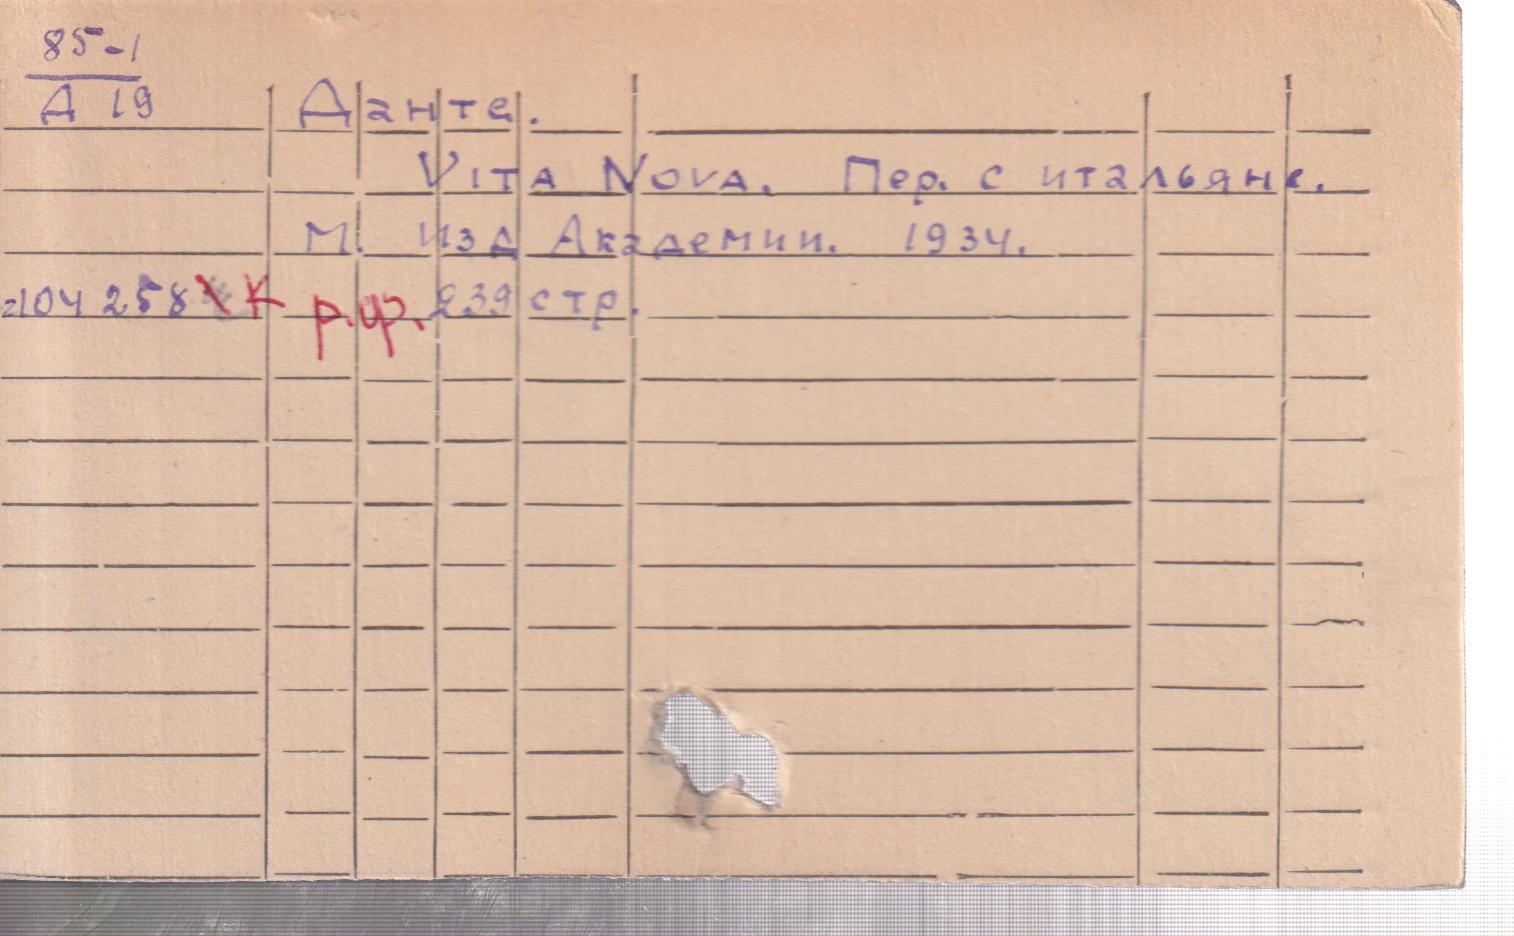 85-1
Д 19
Данте.
VITA NOVA. Пер. с итальянс.
М. Изд Академии. 1934.
104 258 К р.ф. 239 стр.